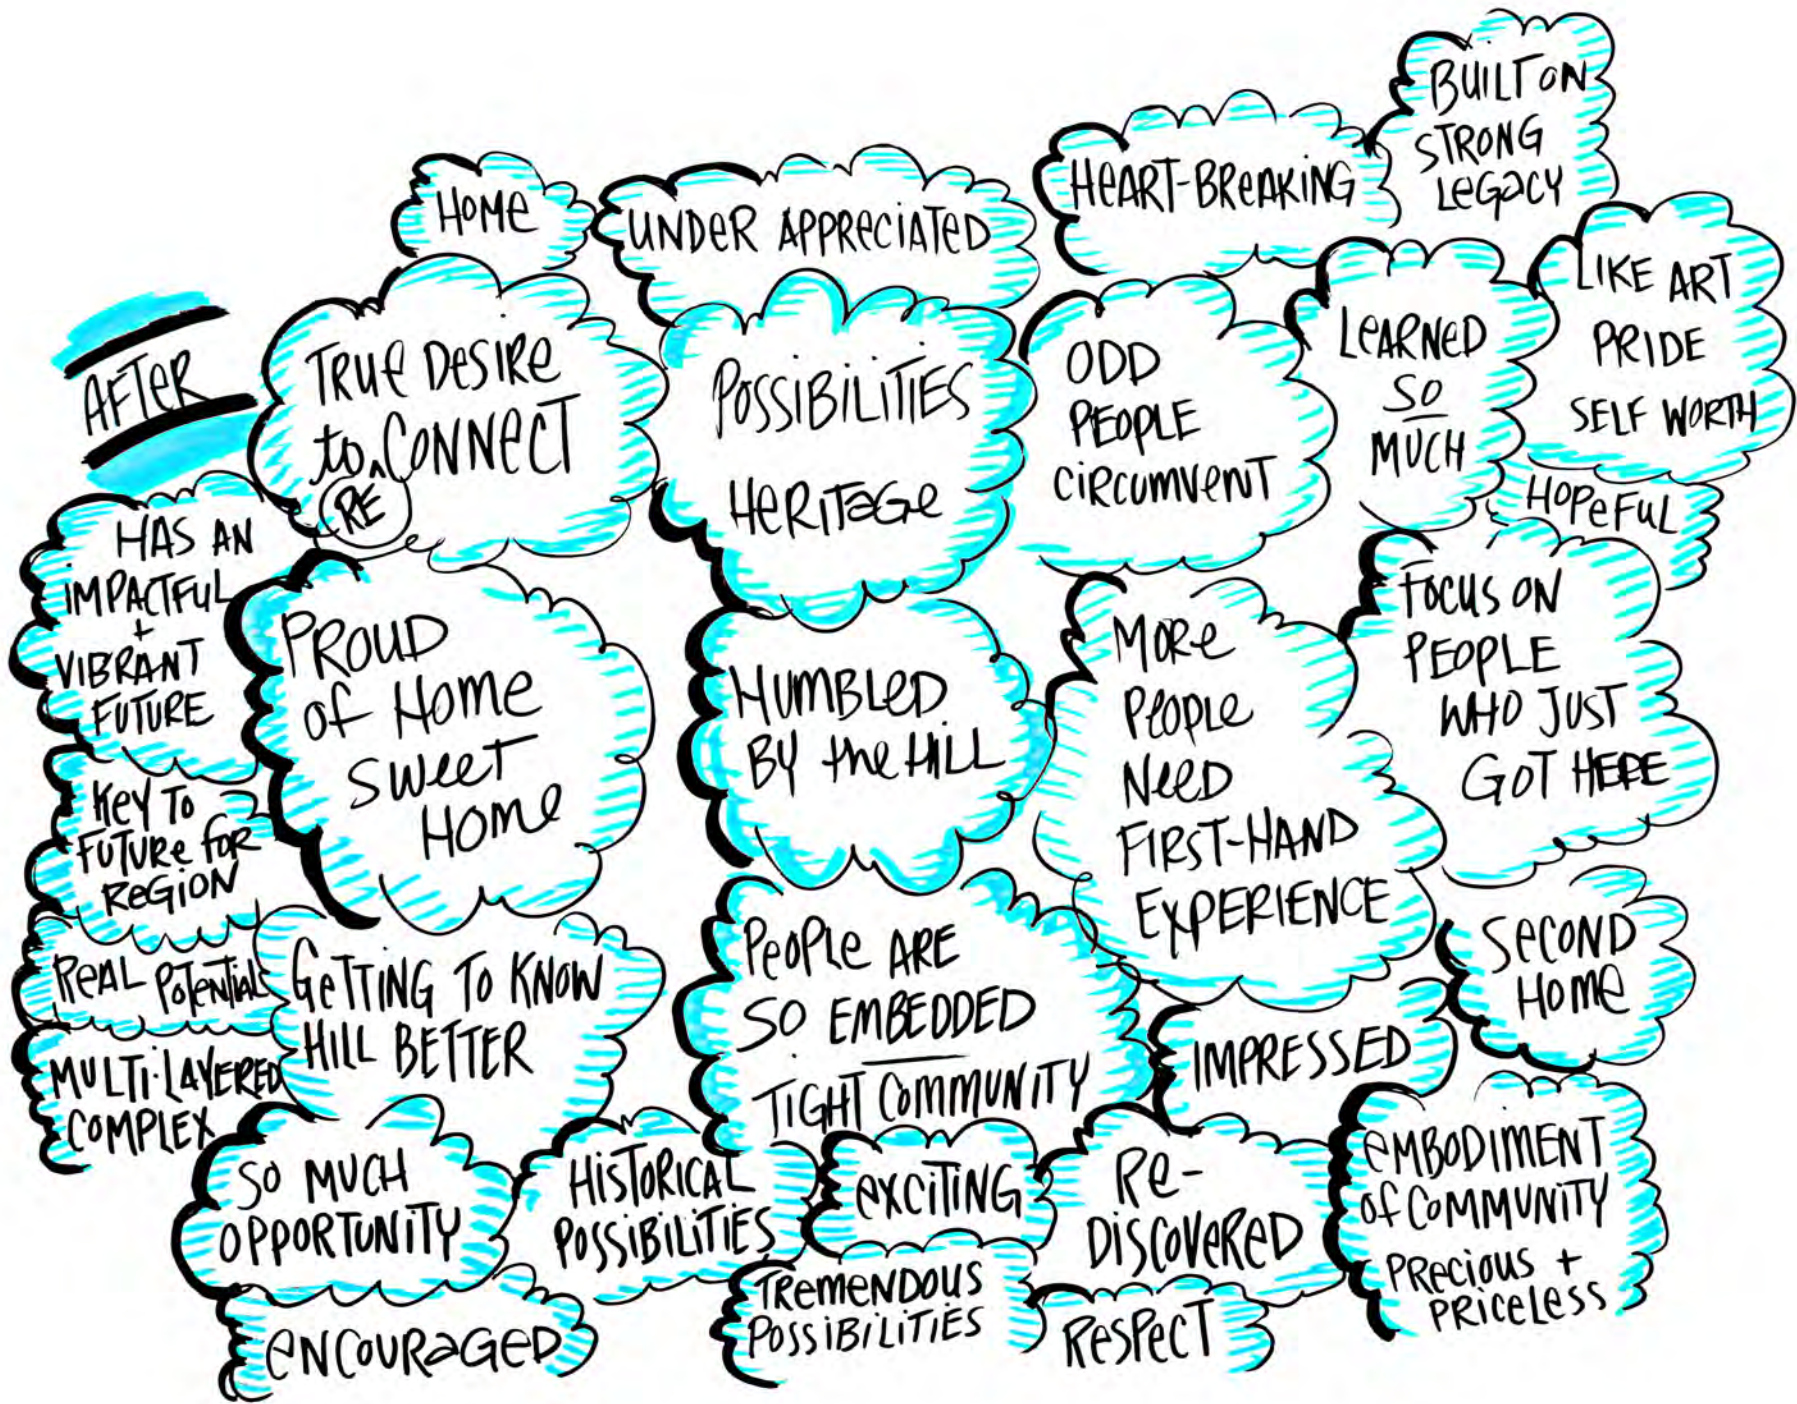 AFTER
HOME
UNDER APPRECIATED
HEART-BREAKING
BUILT ON
STRONG
LEGACY
TRUE DESIRE
to ^ CONNECT
RE
POSSIBILITIES
HERITAGE
ODD
PEOPLE
CIRCUMVENT
LEARNED
SO
MUCH
LIKE ART
PRIDE
SELF WORTH
HOPEFUL
HAS AN
IMPACTFUL
+
VIBRANT
FUTURE
PROUD
OF HOME
SWEET
HOME
HUMBLED
BY the HILL
MORE
PEOPLE
NEED
FIRST-HAND
EXPERIENCE
FOCUS ON
PEOPLE
WHO JUST
GOT HERE
KEY TO
FUTURE FOR
REGION
REAL POTENTIAL
GETTING TO KNOW
HILL BETTER
PEOPLE ARE
SO EMBEDDED
TIGHT COMMUNITY
SECOND
HOME
IMPRESSED
MULTI-LAYERED
COMPLEX
SO MUCH
OPPORTUNITY
HISTORICAL
POSSIBILITIES
EXCITING
RE-
DISCOVERED
EMBODIMENT
OF COMMUNITY
PRECIOUS +
PRICELESS
ENCOURAGED
TREMENDOUS
POSSIBILITIES
RESPECT